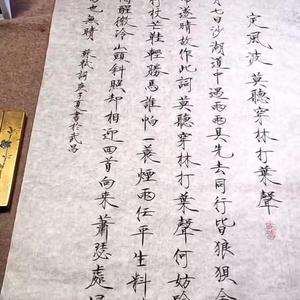 定風波 莫聽穿林打葉聲
七日沙湖道中遇雨雨具先去同行皆狼狽余
遂晴故作此詞莫聽穿林打葉聲何妨吟
竹杖芒鞋輕勝馬誰怕一蓑煙雨任平生料
醒微冷山頭斜照却相迎回首向來蕭瑟處歸
也無晴 蘇軾詞庚子夏書於武昌